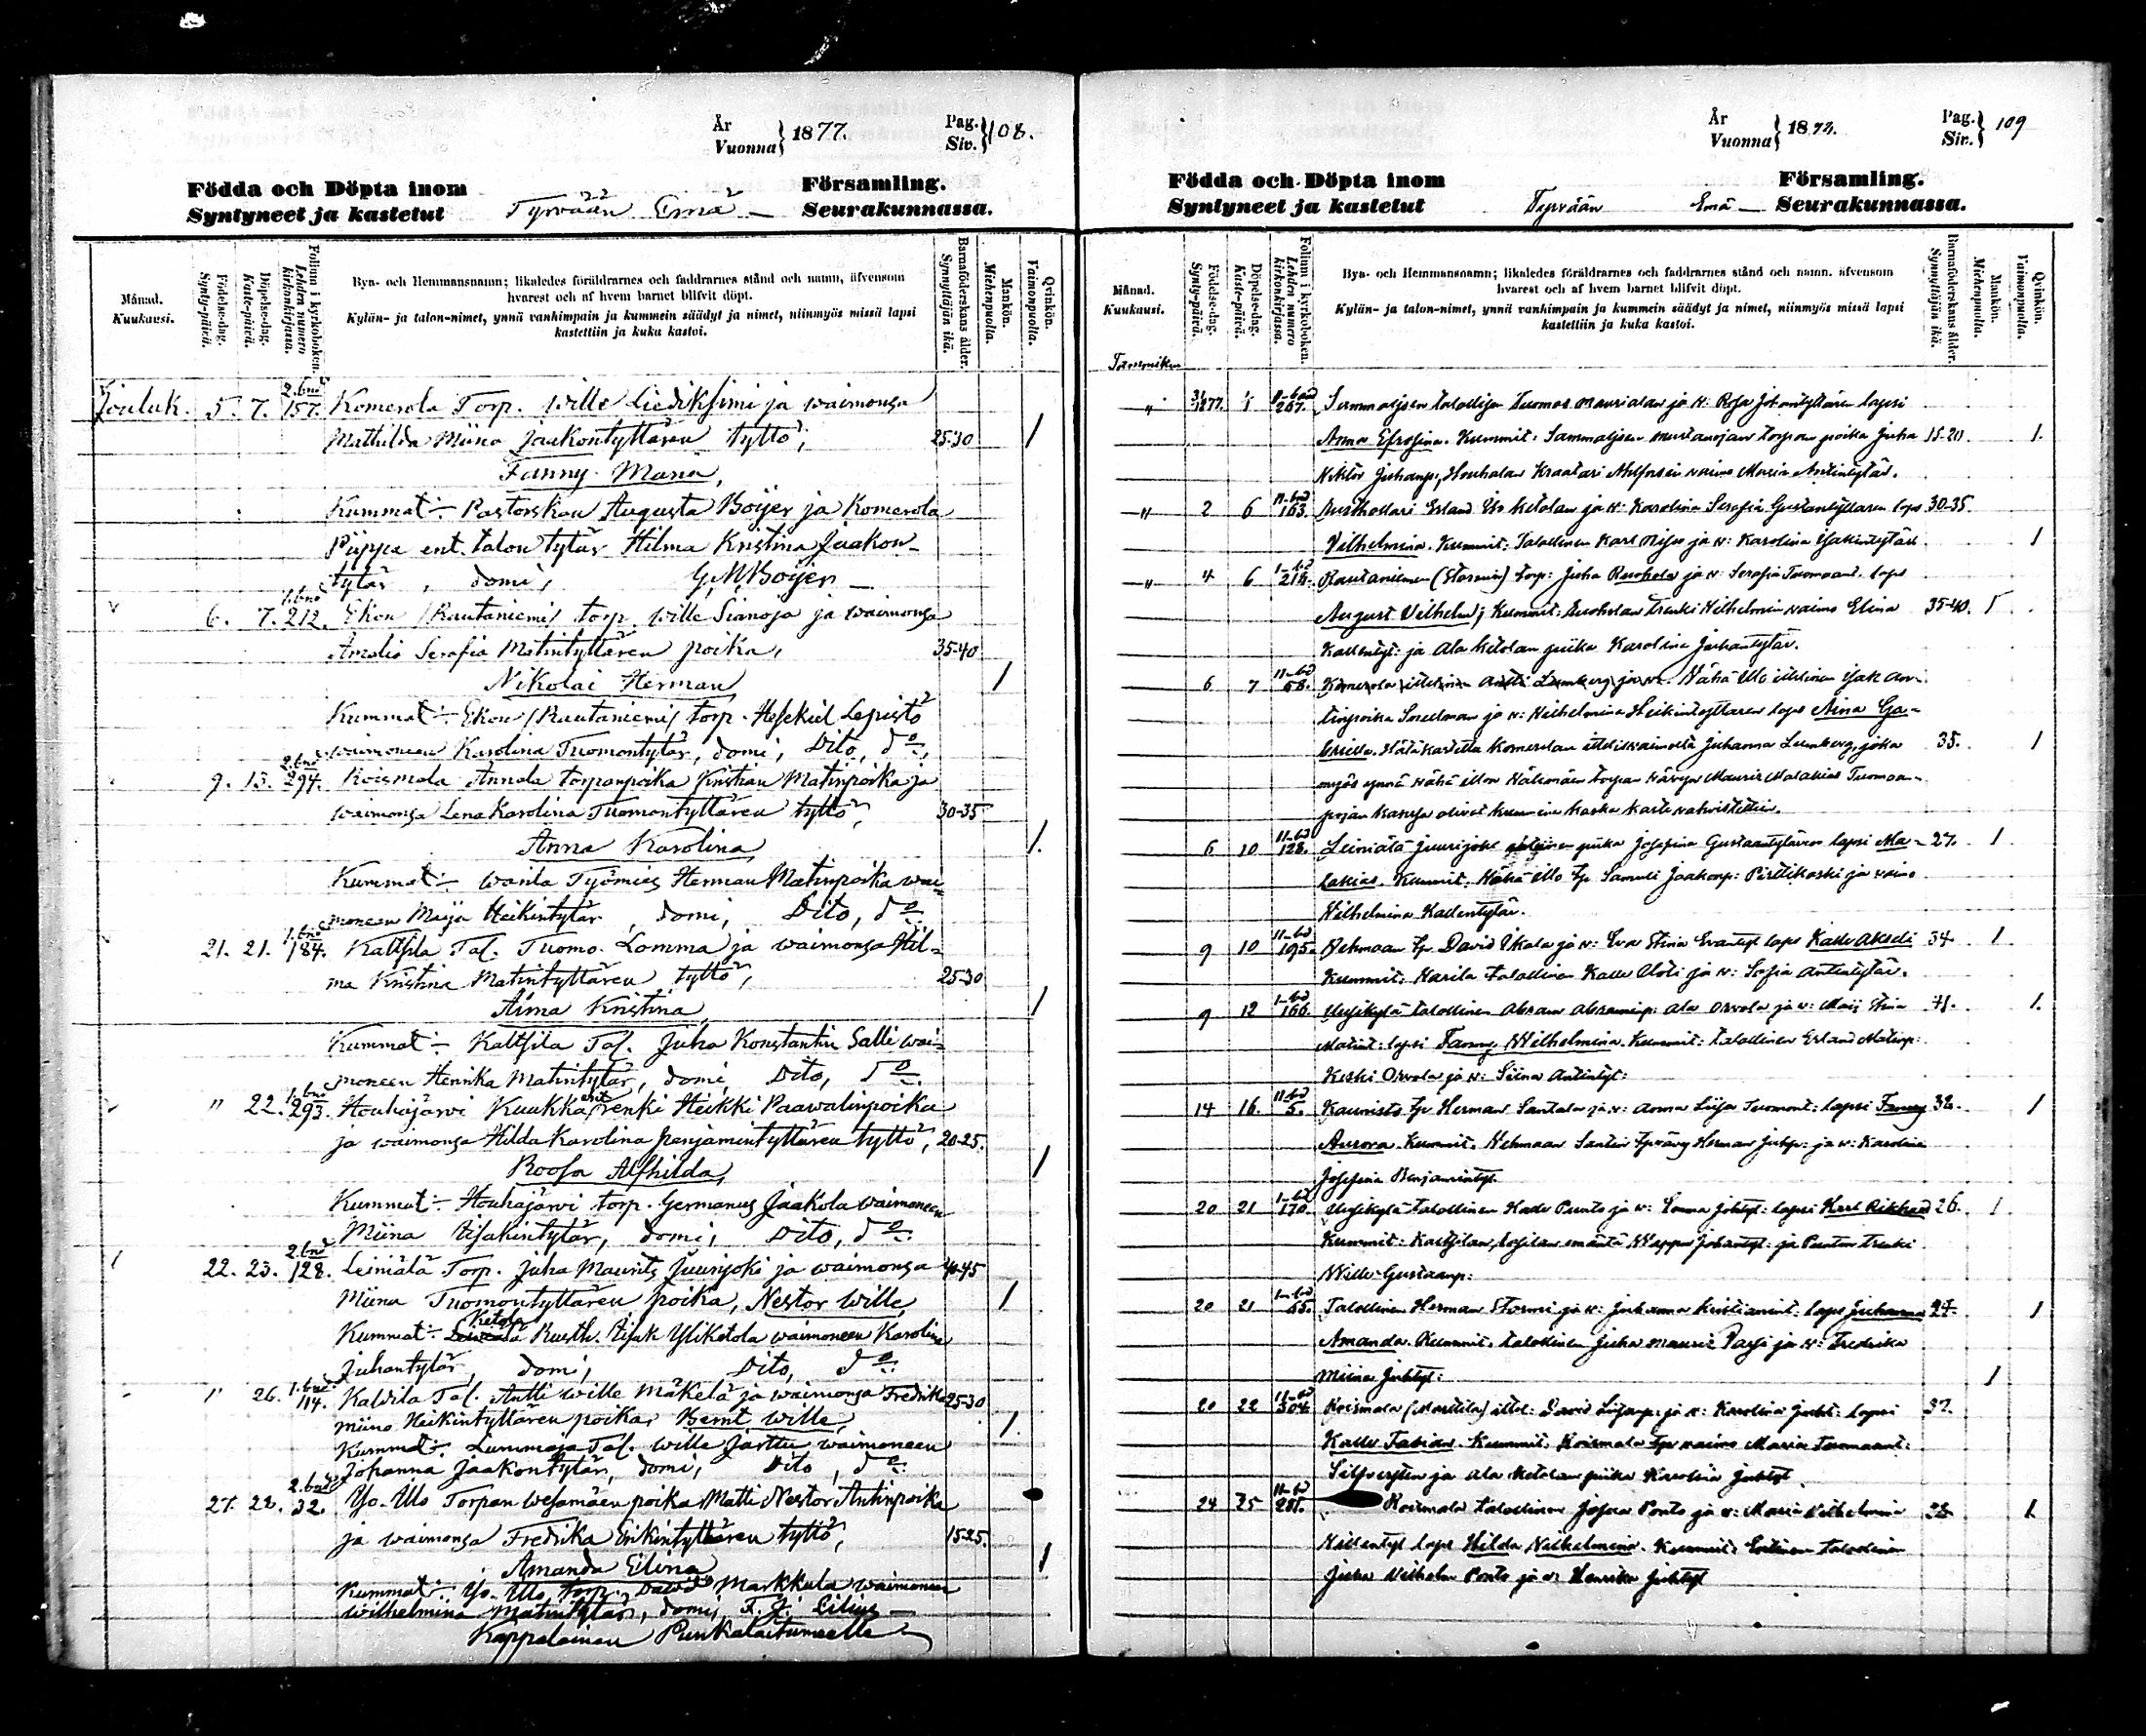 År
Vuonna } 1877.
Pag.
Siv. } 108.
Födda och Döpta inom
Syntyneet ja kastetut
Tyrvään Emä
Församling.
Seurakunnassa.
Månad.
Kuukausi.
Födelse-dag.
Synty-päivä.
Döpelse-dag.
Kaste-päivä.
Folium i kyrkoboken.
Lehden numero kirkonkirjassa.
Bya- och Hemmansnamn; likaledes föräldrarnes och faddrarnes stånd och namn, äfvensom
hvarest och af hvem barnet blifvit döpt.
Kylän- ja talon-nimet, ynnä vanhimpain ja kummein säädyt ja nimet, niinmyös missä lapsi
kastettiin ja kuka kastoi.
Barnaföderskans ålder.
Synnyttäjän ikä.
Mankön.
Miehenpuolta.
Qvinkön.
Vaimonpuolta.
Jouluk. 5. 7. 157. Komerola Torp. Wille Liediksimi ja waimonsa
Mathilda Miina Jaakontyttären tyttö, 25-30 1
Fanny Maria,
Kummat:- Pastorskan Augusta Boijer ja Komerola
Piippa ent. talon tytär Hilma Kristina Jaakon-
tytär, domi, G M Boijer
6. 7. 212. Ekon /Rautaniemi/ torp. Wille Sianoja ja waimonsa
Amalia Serafia Matintyttären poika, 35-40
Nikolai Herman 1
Kummat:- Ekon /Rautaniemi/ torp. Hesekiel Lepistö
waimoneen Karolina Tuomontytär, domi, Dito, do
9. 13. 294. Koismala Annola torpanpoika Kristian Matinpoika ja
waimonsa Lena Karolina Tuomontyttären tyttö, 30-35
Anna Karolina 1.
Kummat:- Wanla Työmies Herman Matinpoika wai-
moneen Maija Heikintytär, domi, Dito, do
21. 21. 184. Kaltsila Tal. Tuomo Lomma ja waimonsa Hil-
ma Kristina Matintyttären tyttö, 25-30
Aina Kristina 1
Kummat:- Kaltsila Tal. Juha Konstantin Salli wai-
moneen Henrika Matintytär, domi, Dito, do
" 22. 293. Houhajärvi Kuukka renki Heikki Paawalinpoika
ja waimonsa Hilda Karolina Penjamintyttären tyttö, 20-25.
Roosa Alfhilda, 1
Kummat:- Houhajärvi torp. Germanus Jaakola waimoneen
Miina Iisakintytär, domi, Dito, do
22. 23. 128. Leiniälä Torp. Juha Maurits Juurijoki ja waimonsa 40-45
Miina Tuomontyttären poika, Nestor Wille 1
Kummat:- Ketola Rusth. Iisak Yliketola waimoneen Karolina
Juhantytär, domi, Dito, do
" 26. 114. Kaldila Tal. Antti Wille Mäkelä ja waimonsa Fredrika 25-30
Miina Heikintyttären poika, Bernt Wille, 1.
Kummat:- Lummaja Tal. Wille Jarttu waimoneen
Johanna Jaakontytär, domi, Dito, do
27. 28. 32. Yo-Ulo Torpan Wesamäen poika Matti Nestor Antinpoika
ja waimonsa Fredrika Erikintyttären tyttö, 15-25.
Amanda Elina 1
Kummat:- Yo-Ulo, Torp. David Markkula waimoneen
Wilhelmina Matintytär, domi, F. J. Cilius
Kappalainen Punkalaitumeelle
År
Vuonna } 1878.
Pag.
Siv. } 109
Födda och Döpta inom
Syntyneet ja kastetut
Tyrvään Emä
Församling.
Seurakunnassa.
Månad.
Kuukausi.
Födelse-dag.
Synty-päivä.
Döpelse-dag.
Kaste-päivä.
Folium i kyrkoboken.
Lehden numero kirkonkirjassa.
Bya- och Hemmansnamn; likaledes föräldrarnes och faddrarnes stånd och namn, äfvensom
hvarest och af hvem barnet blifvit döpt.
Kylän- ja talon-nimet, ynnä vanhimpain ja kummein säädyt ja nimet, niinmyös missä lapsi
kastettiin ja kuka kastoi.
Barnaföderskans ålder.
Synnyttäjän ikä.
Mankön.
Miehenpuolta.
Qvinkön.
Vaimonpuolta.
Tammikuu
267. Sammaljoen talollisen Tuomas Maurialan ja w: Rosa Johantyttären lapsi
Anna Efrosina. Kummit: Sammaljoen Mustanojan torpan poika Juha 15-20. 1.
Nihtor Juhanp:, Houhalan Kraatari waimo Maria Antintytär.
2 6 163. Rusthollari Erland Ketolan ja w: Karolina Serafia Gustantyttären laps 30-35.
Vilhelmina. Kummit: Talollinen Karl ja w: Karolina 1
4 6 214. Rautaniemen torp: Juha Ruohola ja w: Serafia Tuomaant. laps
August Vilhelm; Kummit: Ruoholan Trenki Wilhelmin waimo Elina 35-40. 1
Kallentyt: ja Ala Ketolan piika Karolina Juhantytär.
6 7 58. Nähä Ulo itellinen Isak An-
tinpoika ja w: Wilhelmina Heikintyttären laps Aina Ga-
briella. Hätäkastetta Komerolan itellisvaimolta Juhanna Lumberg, joka 35. 1
myös ynnä Nähä Ulon torpan Mauriz Malakias Tuomaan-
pojan kanssa olivat kummina koska kaste vahvistettiin.
6 10 128. Leiniälä Juurijoki piika Josefina Gustaantyttären lapsi Ma- 27. 1
lakias. Kummit: Nähä Ulo tp Samuli Jaakonp: Pirttikoski ja waimo
Wilhelmina Kallentytär.
9 10 195. Wehmaan tp. David Ikala ja w: Eva Stina laps Kalle Akseli 34 1
Kummit: Harila talollinen Kalle Uoti ja w: Sofia Antintytär.
9 12 166. Uusikylä talollinen Abram Abramip: Ala Orvola ja w: Maij Stina 41. 1.
Matint: lapsi Fanny Wilhelmina. Kummit: talollinen Erland Matinp:
Keski Orvola ja w: Stina Antintyt:
14 16. 5. Kaunisto tp Herman Santala ja w: Anna Liisa Tuomont: lapsi Fanny 32. 1
Aurora. Kummit: Wehmaan Herman Juhp: ja w: Karolina
Josefina Benjamintyt.
20 21 170. Uusikylä talollinen Kalle Punto ja w: Emma Johtyt: lapsi Karl Rikhard 26. 1
Kummit: Kaltsilan emäntä Wappu Johantyt: ja Punton Trenki
Wille Gustaanp:
20 21 65. Talollinen Herman Stormi ja w: Johanna Kristianint: laps Juhanna 24. 1
Amanda. Kummit: talollinen Juha Mauriz ja w: Fredrika
Miina Juhtyt:
20 22 304. Koismala (Marttila) itell: David ja w: Karolina Juht: lapsi 37. 1
Kalle Fabian. Kummit: Koismala tp waimo Maria Tuomaant:
ja Ala Ketolan piika Karolina Juhtyt
24 25 281. Koismala talollinen Josua Ponto ja w: Maria Wilhelmina 28. 1
laps Hilda Wilhelmina. Kummit: talollinen
Juha Wilhelm Ponto ja w: Henrika Juhtyt